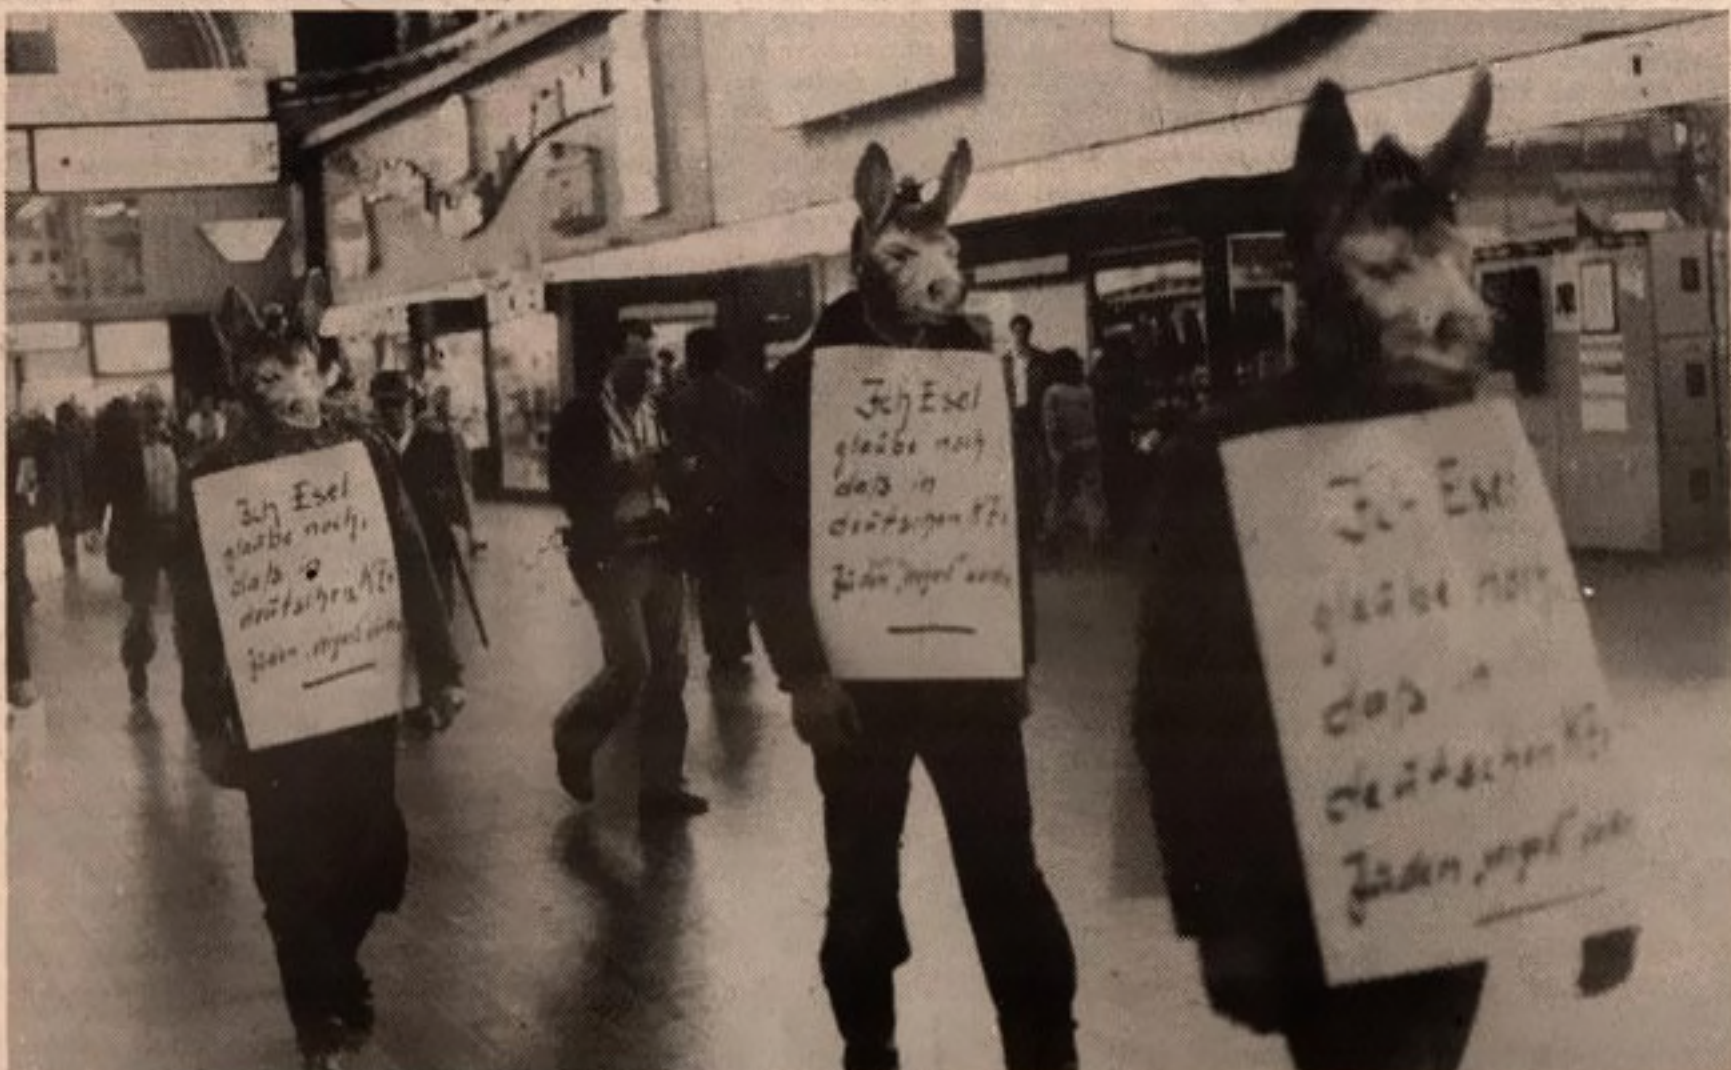 Ich Esel
glaube noch,
daß in
deutschen KZs
Juden „vergast“ wurden
Ich Esel
glaube noch
daß in
deutschen KZs
Juden „vergast“ wurden
Ich Esel
glaube noch
daß in
deutschen KZs
Juden „vergast“